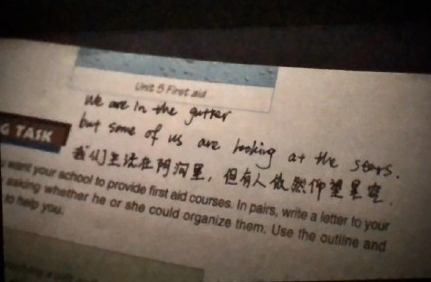 Unit 5 First aid
we are in the gutter
but some of us are looking at the stars.
我们生活在阴沟里，但有人依然仰望星空.
G TASK
want your school to provide first aid courses. In pairs, write a letter to your
asking whether he or she could organize them. Use the outline and
to help you.